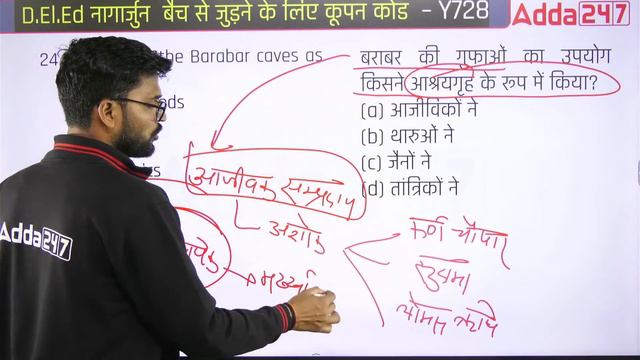 D.El.Ed नागार्जुन बैच से जुड़ने के लिए कूपन कोड - Y728
Adda247
24
the Barabar caves as
बराबर की गुफाओं का उपयोग
किसने आश्रयगृह के रूप में किया?
(a) आजीविकों ने
(b) थारुओं ने
(c) जैनों ने
(d) तांत्रिकों ने
आजीवक सम्प्रदाय
अशोक
कर्ण चौपार
सुदामा
लोमस ऋषि
Adda247